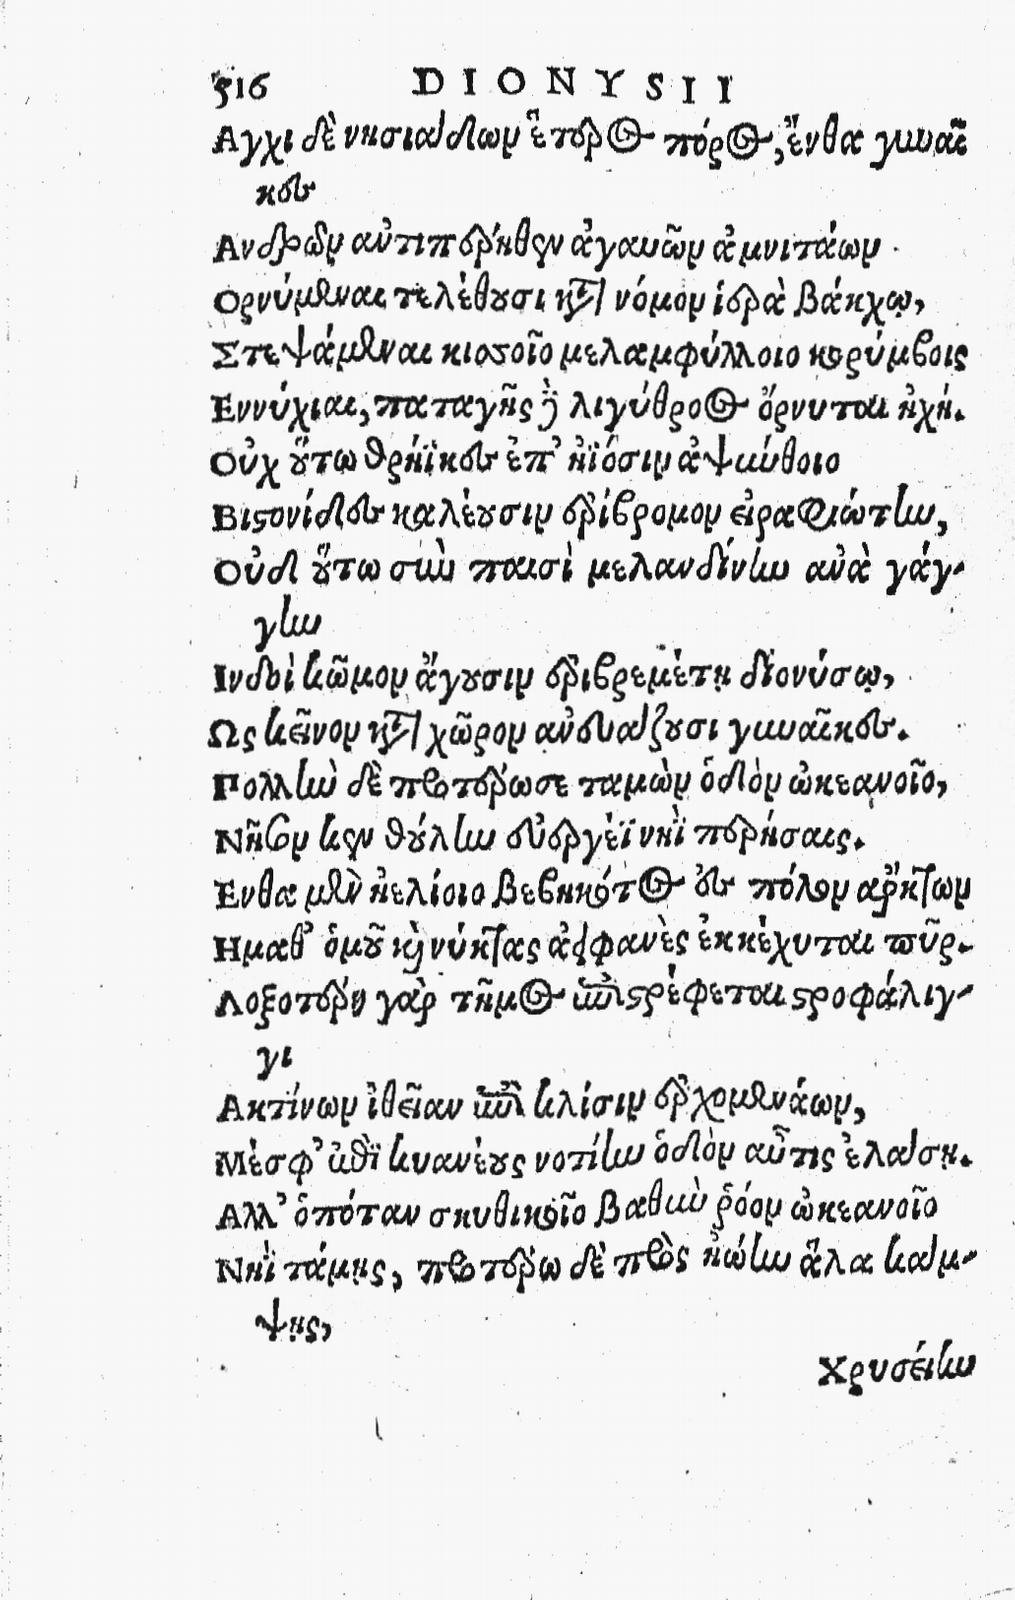 516 DIONYSII
Αγχι δὲ νησιάδων ἕτερος πόρος, ἔνθα γυναῖ
κες
Ανδρῶν ἀντιπέρηθεν ἀγαυῶν ἀμνιτάων
Ορνύμεναι τελέθουσι κατὰ νόμον ἱερὰ βάκχῳ,
Στεψάμεναι κισσοῖο μελαμφύλλοιο κορύμβοις
Εννύχιαι, παταγῆς δὲ λιγύθροος ὄρνυται ἠχή.
Οὐχ οὕτω θρήϊκες ἐπ' ἠϊόσιν ἀψύνθοιο
Βιστονίδες καλέουσιν ἐρίβρομον εἰραφιώτην,
Οὐδ' οὕτω σὺν παισὶ μελανδίνην ἀνὰ γάγ-
γην
Ινδοὶ κῶμον ἄγουσιν ἐριβρεμέτῃ διονύσῳ,
Ως κεῖνον κατὰ χῶρον ἀνευάζουσι γυναῖκες.
Πολλὴν δὲ προτέρωσε ταμὼν ὁδὸν ὠκεανοῖο,
Νῆσον κεν θούλην εὐεργέϊ νηῒ περήσαις.
Ενθα μὲν ἠελίοιο βεβηκότος ἐς πόλον ἄρκτων
Ημαθ' ὁμοῦ καὶ νύκτας ἀειφανὲς ἐκκέχυται πῦρ.
Λοξοτέρῃ γὰρ τῆμος ἐπιστρέφεται στροφάλιγ-
γι
Ακτίνων ἰθεῖαν ἐπὶ κλίσιν ἐρχομενάων,
Μέσφ' ἐπὶ κυανέους νοτίην ὁδὸν αὖτις ἐλάσῃ.
Αλλ' ὁπόταν σκυθικοῖο βαθὺν ῥόον ὠκεανοῖο
Νηῒ τάμῃς, προτέρω δὲ πρὸς ἠώην ἅλα κάμ-
ψῃς,
Χρυσείην